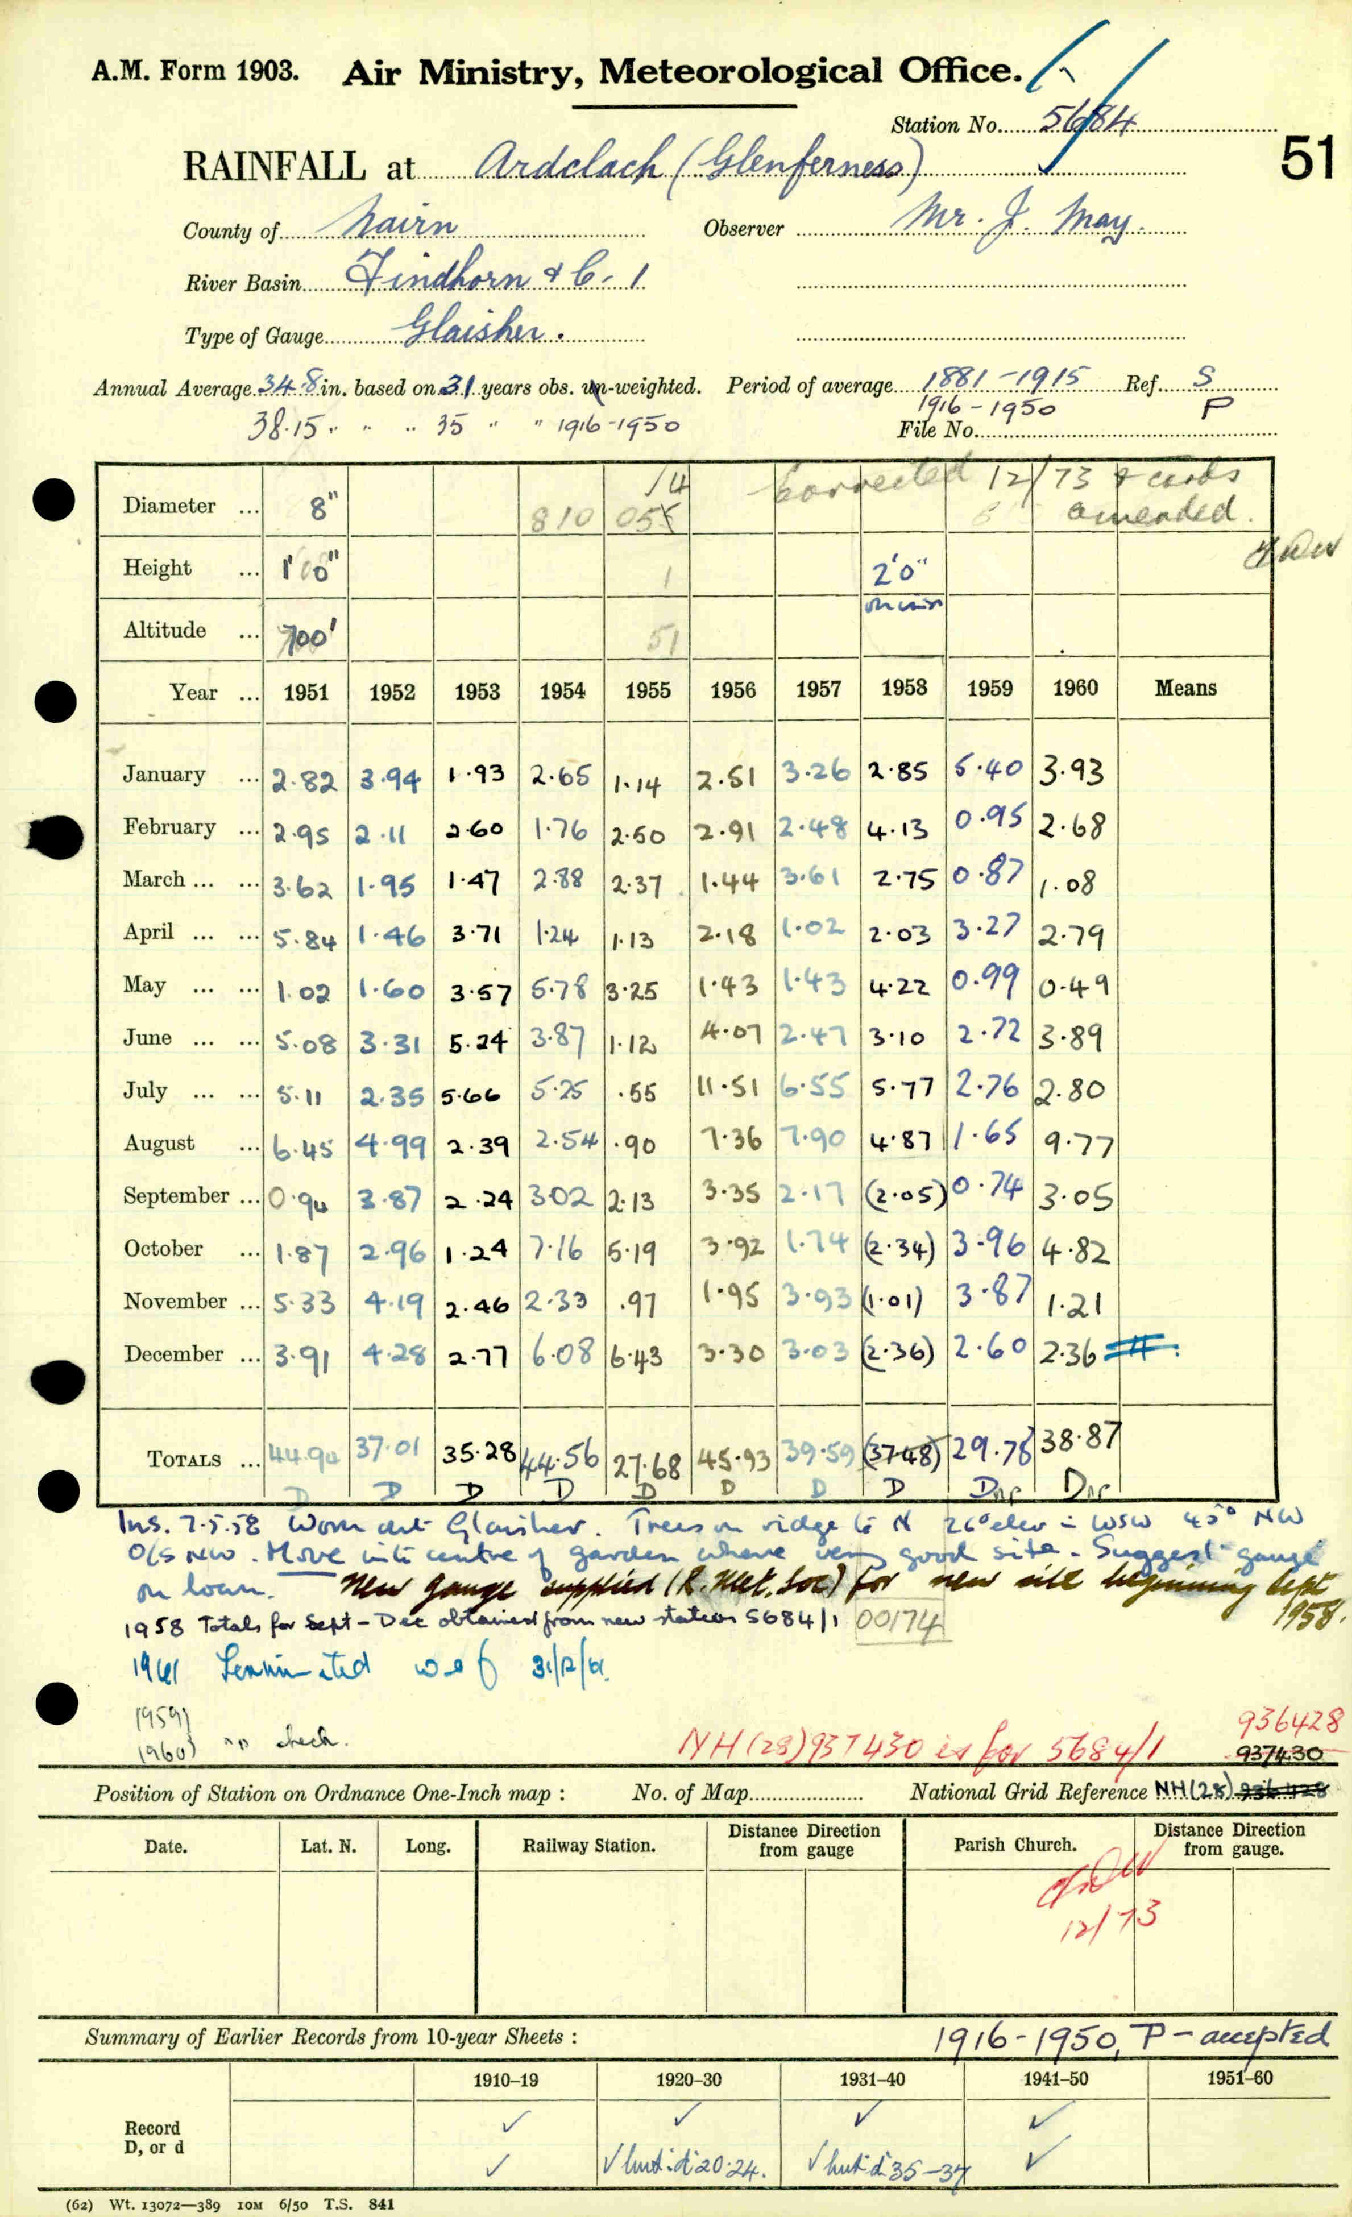 A.M. Form 1903. Air Ministry, Meteorological Office.
Station No. 5684
51
RAINFALL at Ardclach (Glenferness)
County of Nairn Observer Mr. J. May.
River Basin Findhorn & C. 1
Type of Gauge Glaisher.
Annual Average 34.8 in. based on 31 years obs. un-weighted. Period of average 1881-1915 Ref. S
38.15 " " " 35 " " 1916-1950 1916-1950 P
File No.
/4 Corrected 12/73 & cards
Diameter ... 8" 810 055 amended.
Height ... 1' 0" 1 2'0"
Altitude ... 700' 51
Year ... 1951 1952 1953 1954 1955 1956 1957 1958 1959 1960 Means
January ... 2.82 3.94 1.93 2.65 1.14 2.51 3.26 2.85 5.40 3.93
February ... 2.95 2.11 2.60 1.76 2.50 2.91 2.48 4.13 0.95 2.68
March ... ... 3.62 1.95 1.47 2.88 2.37 1.44 3.61 2.75 0.87 1.08
April ... ... 5.84 1.46 3.71 1.24 1.13 2.18 1.02 2.03 3.27 2.79
May ... ... 1.02 1.60 3.57 5.78 3.25 1.43 1.43 4.22 0.99 0.49
June ... ... 5.08 3.31 5.24 3.87 1.12 4.07 2.47 3.10 2.72 3.89
July ... ... 5.11 2.35 5.66 5.25 .55 11.51 6.55 5.77 2.76 2.80
August ... 6.45 4.99 2.39 2.54 .90 7.36 7.90 4.87 1.65 9.77
September ... 0.94 3.87 2.24 3.02 2.13 3.35 2.17 (2.05) 0.74 3.05
October ... 1.87 2.96 1.24 7.16 5.19 3.92 1.74 (2.34) 3.96 4.82
November ... 5.33 4.19 2.46 2.33 .97 1.95 3.93 (1.01) 3.87 1.21
December ... 3.91 4.28 2.77 6.08 6.43 3.30 3.03 (2.36) 2.60 2.36
Totals ... 44.94 37.01 35.28 44.56 27.68 45.93 39.59 (37.48) 29.78 38.87
D D D D D D D D
Ins. 7.5.58 Worn out Glaisher. Trees on ridge to N 26° elev = WSW 45° NW
O/S NW. Move into centre of garden where very good site. Suggest gauge
on loan. New gauge supplied (R. Met. Soc) for new site beginning Sept 1958.
1958 Totals for Sept - Dec obtained from new station 5684/1 00174
1961 Terminated w e f 31/12/61.
1959)
1960) no check.
NH (28) 937430 is for 5684/1 936428
937430
Position of Station on Ordnance One-Inch map : No. of Map National Grid Reference NH (28) 936428
Date. Lat. N. Long. Railway Station. Distance from Direction gauge Parish Church. Distance from Direction gauge.
12/73
Summary of Earlier Records from 10-year Sheets : 1916-1950, P - accepted
1910–19 1920–30 1931–40 1941–50 1951–60
Record ✓ ✓ ✓ ✓
D, or d ✓ ✓ but d 20.24. ✓ but d 35-37 ✓
(62) Wt. 13072—389 10M 6/50 T.S. 841